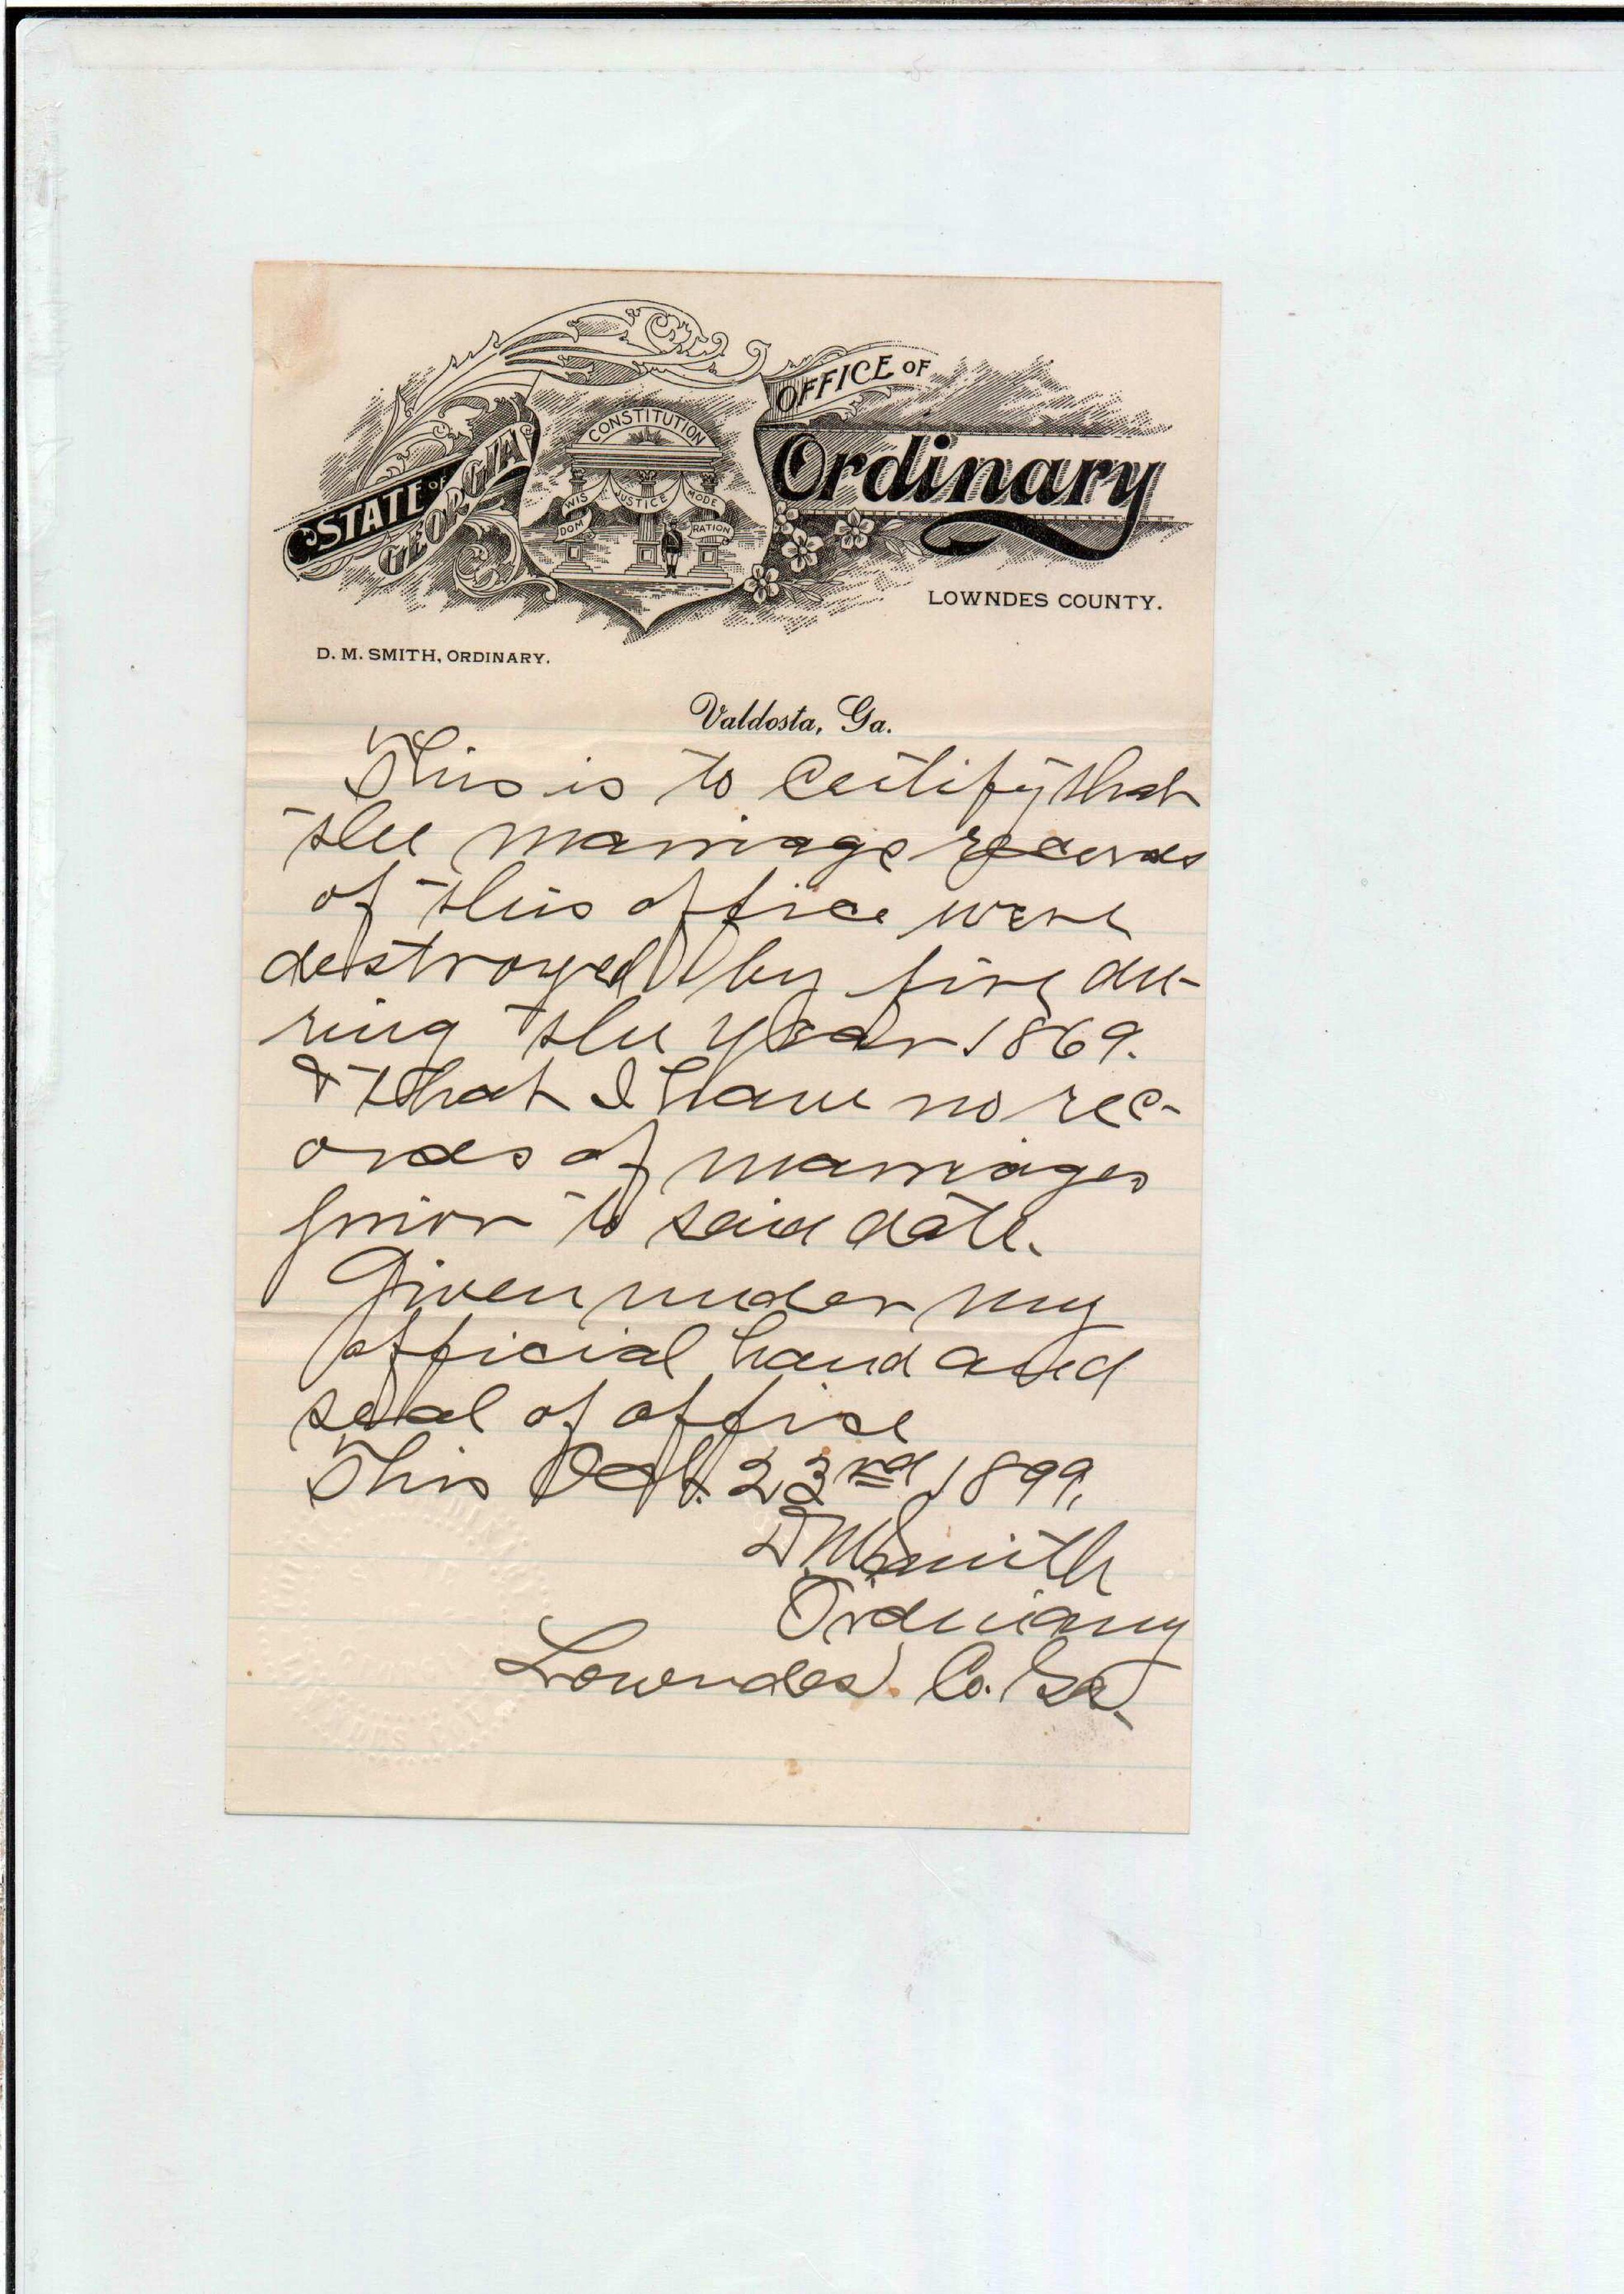 STATE OF GEORGIA
OFFICE OF
Ordinary
CONSTITUTION
WIS DOM JUSTICE MODE RATION
LOWNDES COUNTY.
D. M. SMITH, ORDINARY.
Valdosta, Ga.
This is to certify that
the marriage records
of this office were
destroyed by fire du-
ring the year 1869.
& that I have no rec-
ords of marriages
prior to said date.
Given under my
official hand and
seal of office
This Oct. 23rd 1899.
D. M. Smith
Ordinary
Lowndes Co. Ga.